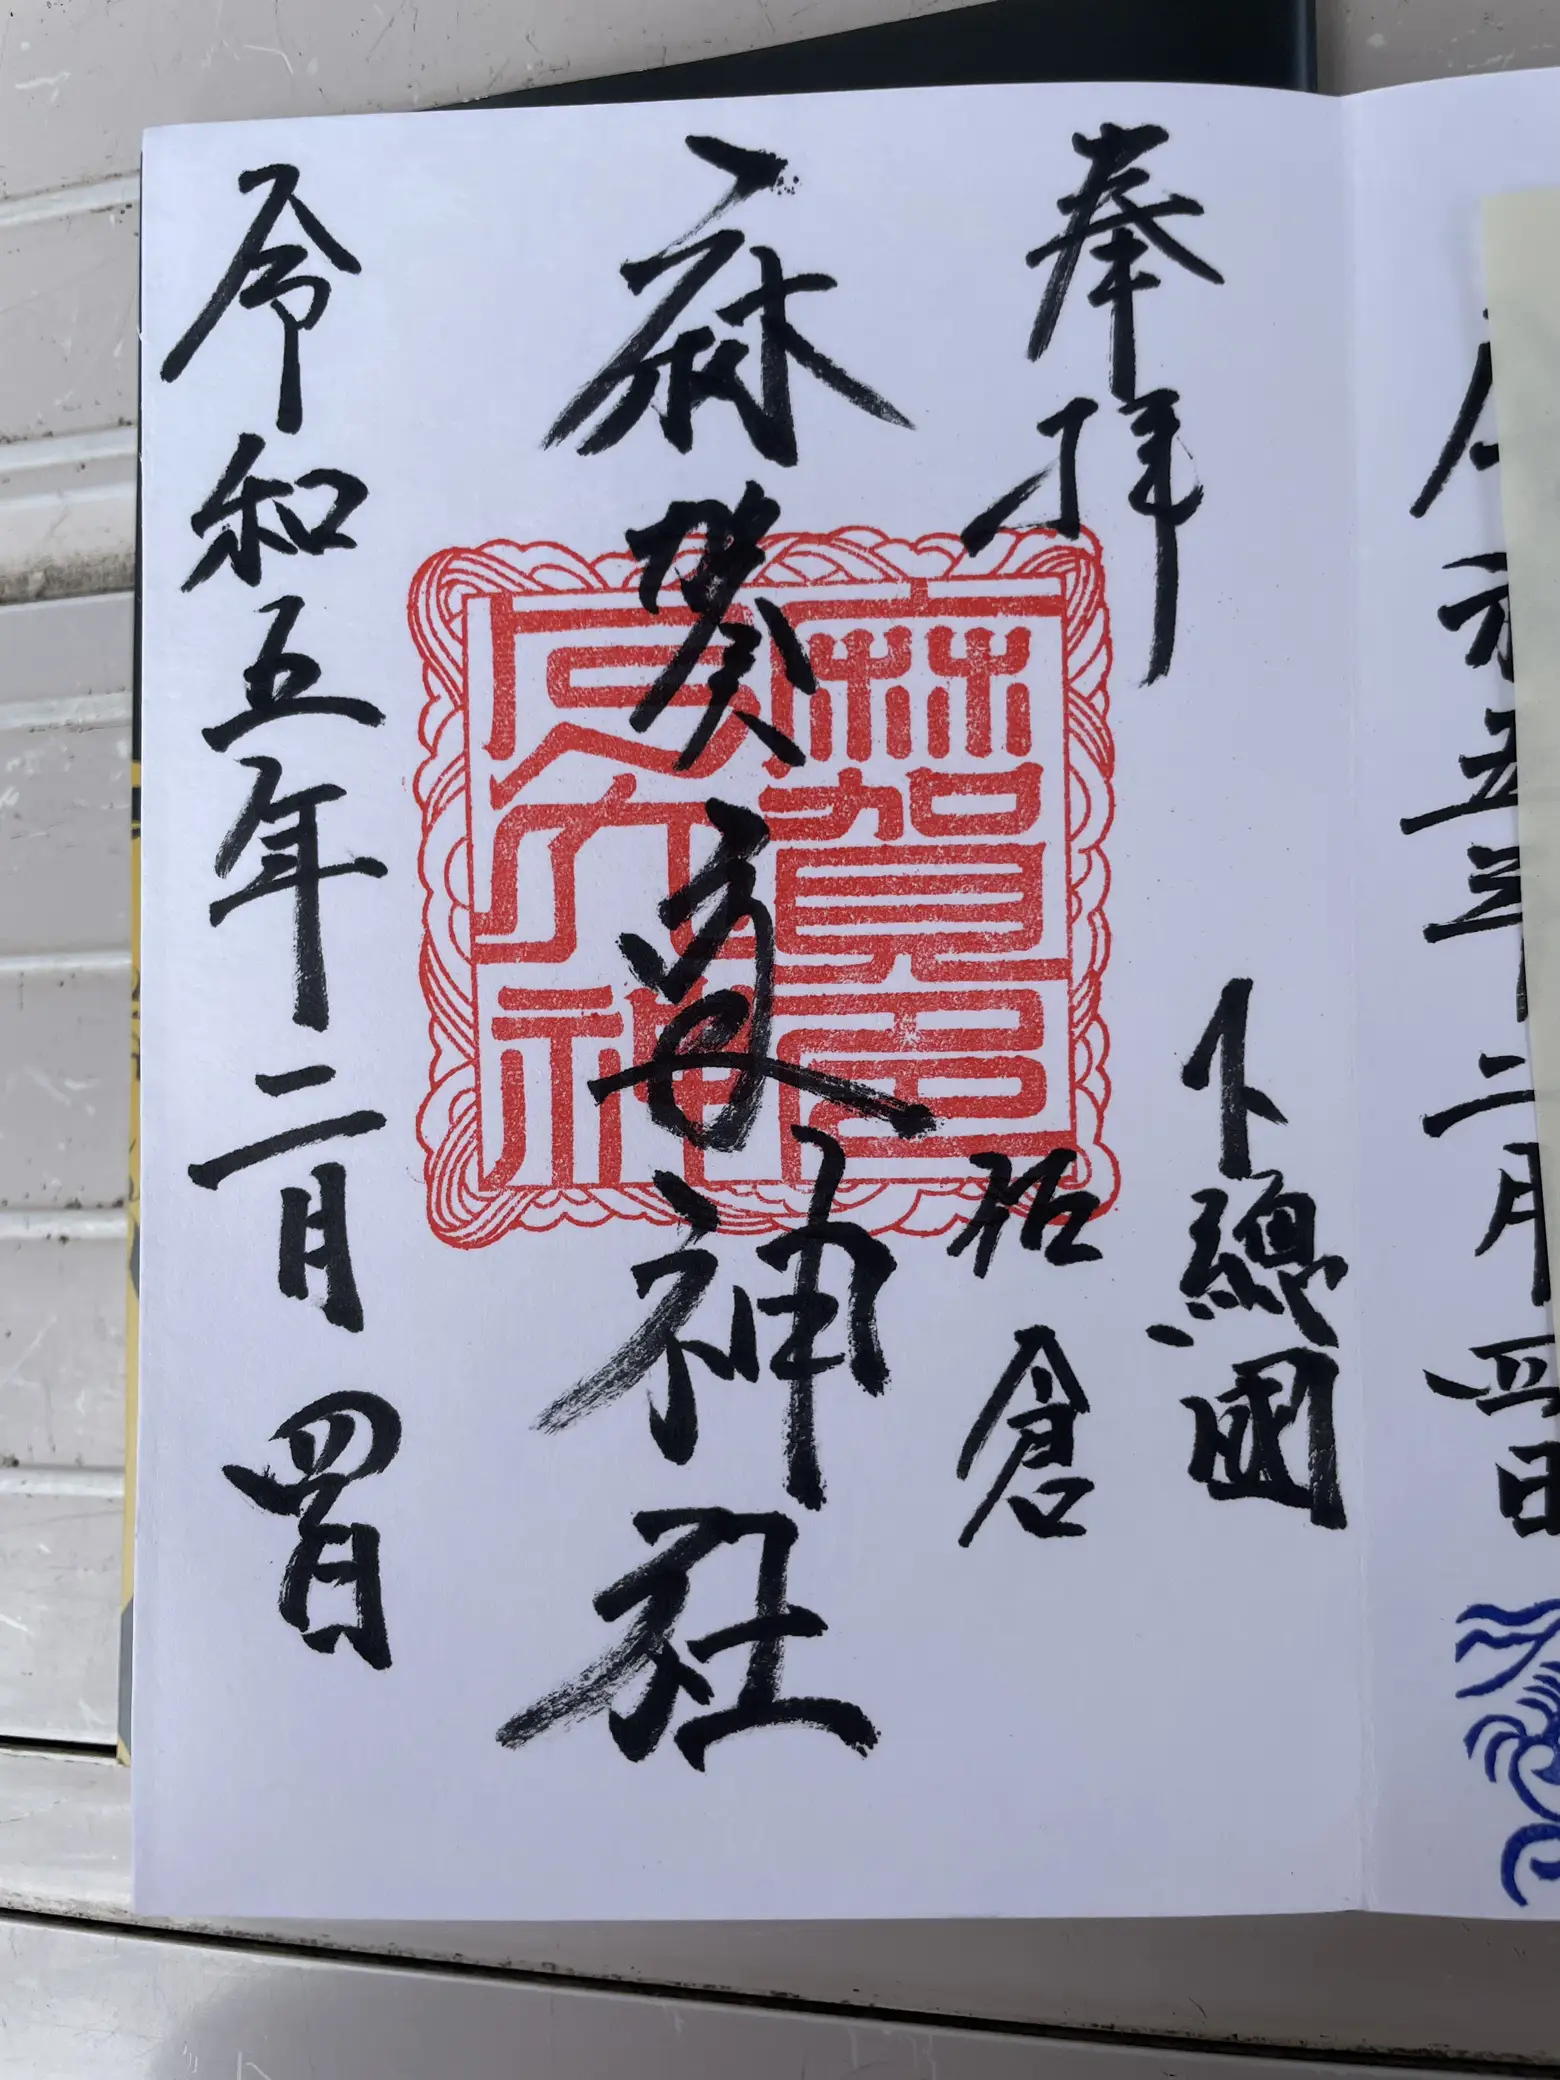 令和五年二月四日
奉拜
下總國
佐倉
麻賀多神社
令和五年二月四日